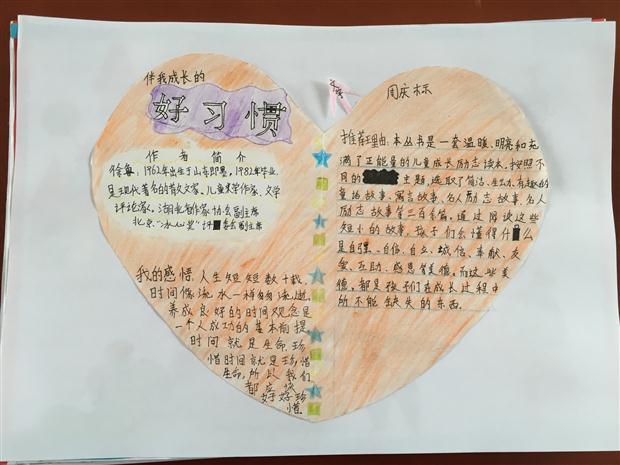 伴我成长的
好习惯
作者简介
徐鲁，1962年出生于山东即墨，1982年毕业，
是现代著名的散文家、儿童文学作家、文学
评论家、湖北省作家协会副主席
北京“冰心奖”评委会副主席
我的感悟：人生短短数十载，
时间像流水一样匆匆流逝。
养成良好的时间观念是
一个人成功的基本前提。
时间就是生命，珍
惜时间就是珍惜
生命，所以我们
都应该
好好珍
惜。
周庆标
推荐理由：本丛书是一套温暖、明亮和充
满了正能量的儿童成长励志读本。按照不
同的主题，选取了简洁、生动、有趣的
童话故事、寓言故事、名人励志故事、名人
励志故事等三百多篇，通过阅读这些
短小的故事，孩子们会懂得什么
是自强、自信、自立、诚信、奉献、友
爱、互助、感恩等美德。而这些美
德，都是孩子们在成长过程中
所不能缺失的东西。